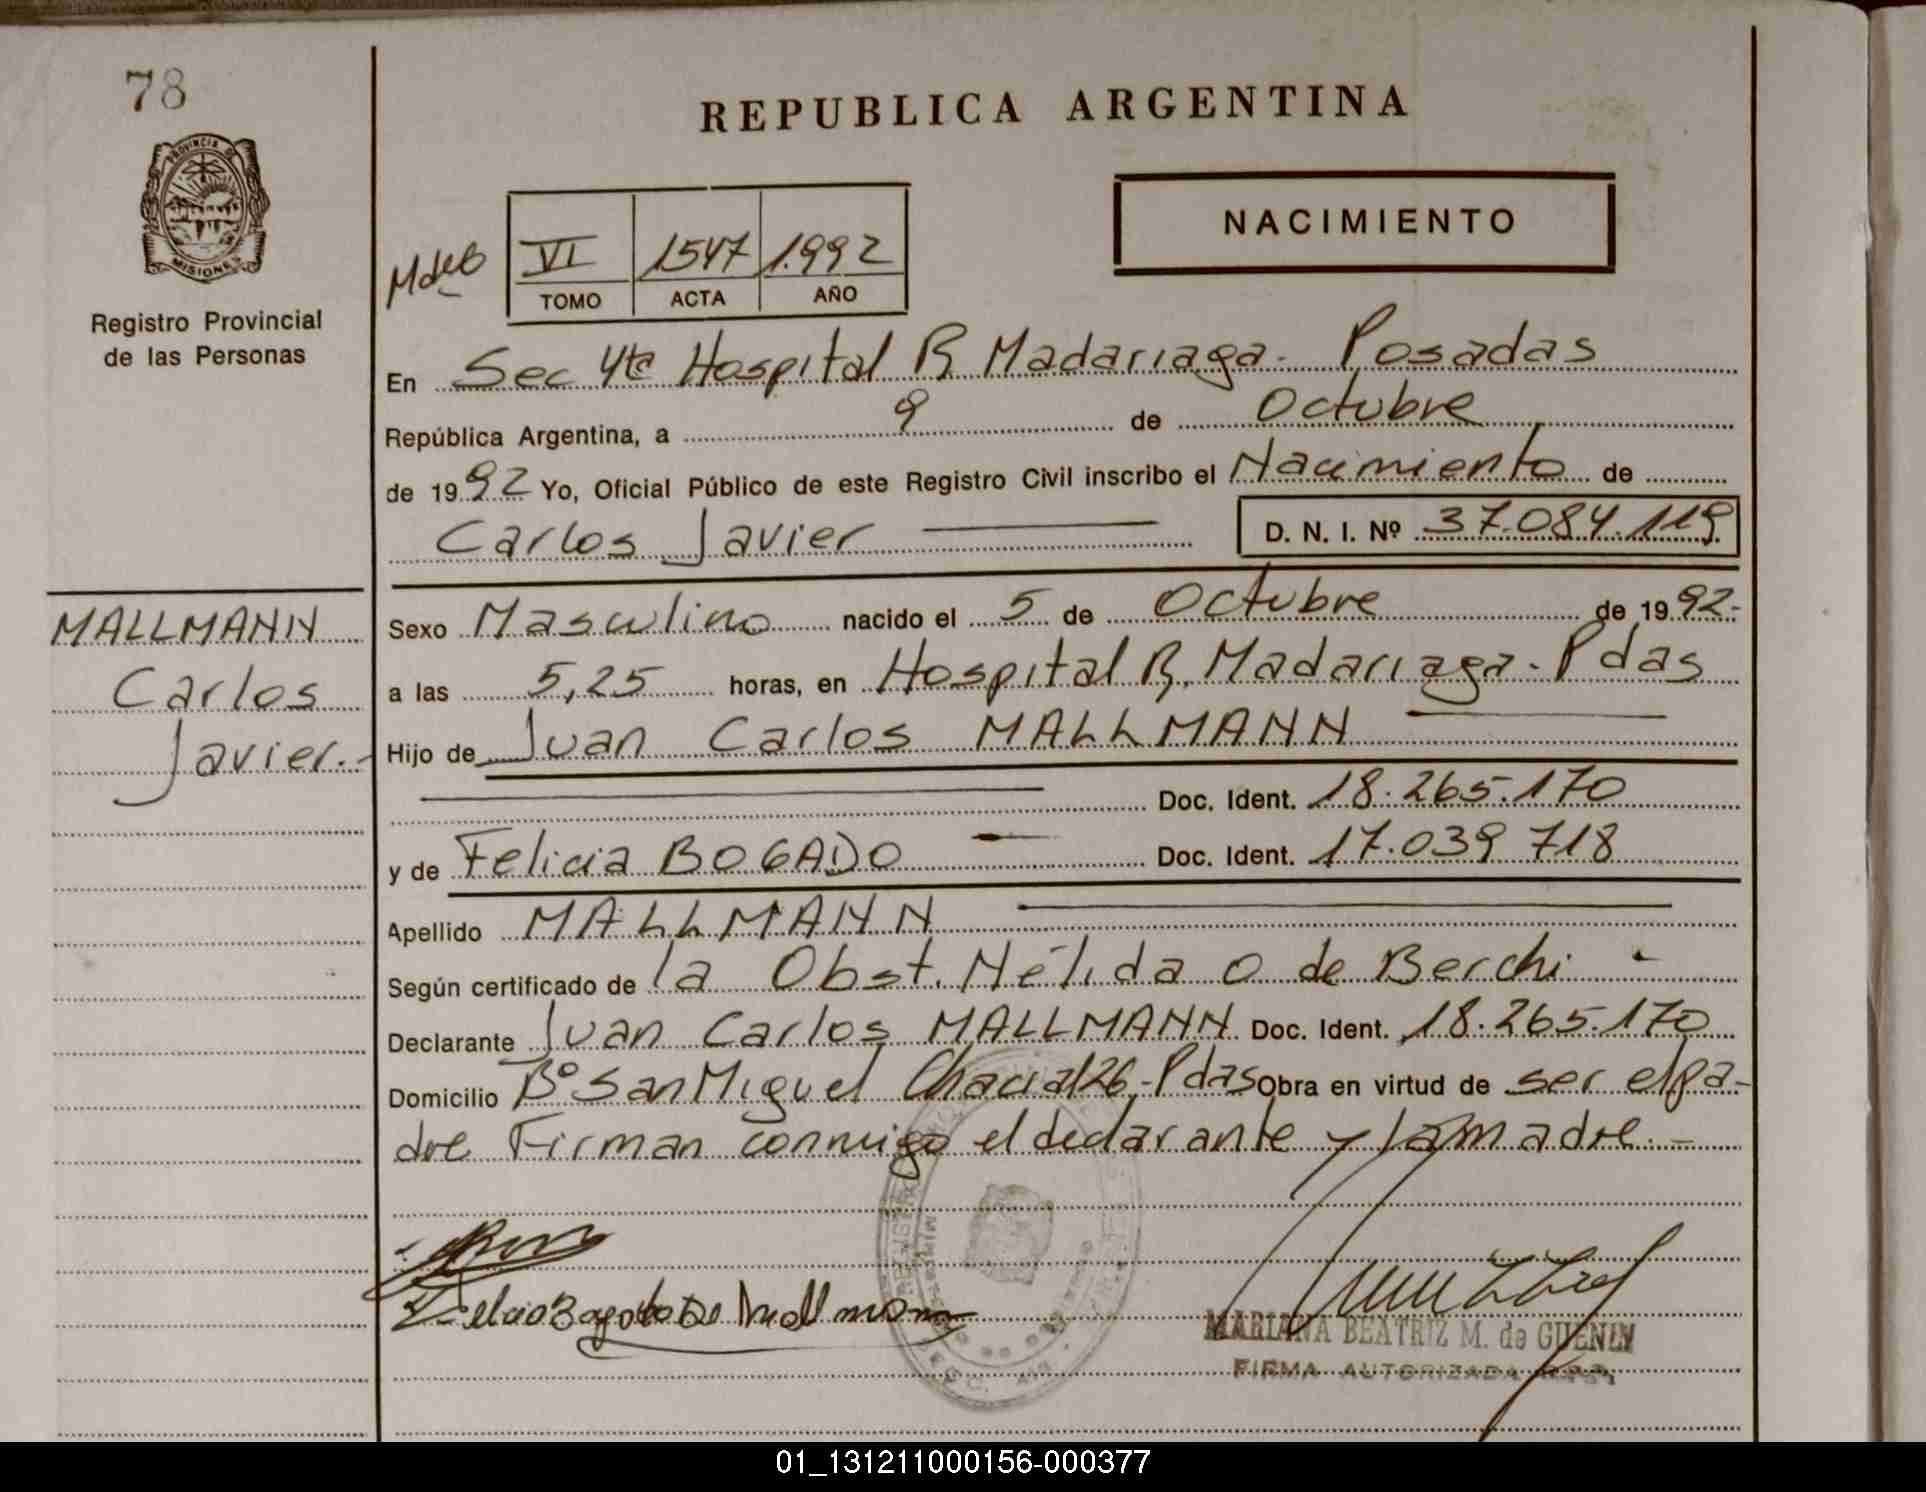 78
REPUBLICA ARGENTINA
PROVINCIA DE
MISIONES
Registro Provincial
de las Personas
NACIMIENTO
VI 1547 1992
TOMO ACTA AÑO
En Sec 4ta Hospital R Madariaga - Posadas
República Argentina, a 9 de Octubre
de 1992 Yo, Oficial Público de este Registro Civil inscribo el Nacimiento de
Carlos Javier D. N. I. Nº 37.084.119
MALLMANN
Carlos
Javier.-
Sexo Masculino nacido el 5 de Octubre de 1992-
a las 5,25 horas, en Hospital R. Madariaga - Pdas
Hijo de Juan Carlos MALLMANN
Doc. Ident. 18.265.170
y de Felicia BOGADO - Doc. Ident. 17.039 718
Apellido MALLMANN
Según certificado de la Obst. Nélida O de Berchi -
Declarante Juan Carlos MALLMANN Doc. Ident. 18.265.170
Domicilio Bº San Miguel Chacra 126 - Pdas Obra en virtud de ser el pa-
dre Firman conmigo el declarante y la madre.-
MARIANA BEATRIZ M. de GUENIN
FIRMA AUTORIZADA
01_131211000156-000377